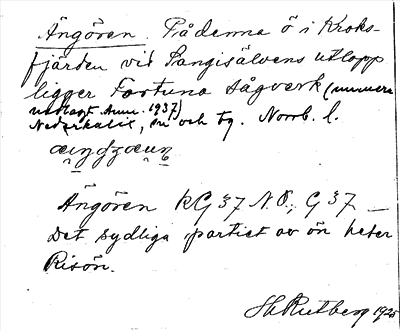 Ängören. På denna ö i Kroks-
fjärden vid Sangisälvens utlopp
ligger Fortuna sågverk (numera
nedlagt Anm. 1937)
Nederkalix, sn och tg. Norrb. l.
Ängören KG 37 N.O., G 37 —
Det sydliga partiet av ön heter
Risön.
Hh Rutberg 1925